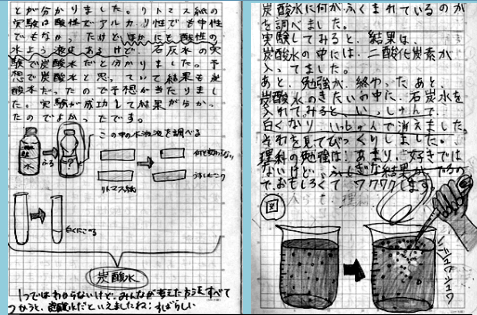 とが分かりました。リトマス紙の
実験は酸性でアルカリ性でも中性
でもなかったけどほかにも酸性の
水よう液はあるけど、石灰水の実
験で炭酸水だと分かりました。予
想で炭酸水と思っていて結果も炭
酸水だったので予想が当たりまし
た。実験が成功して結果が分かっ
たのでよかったです。
この中の水溶液を調べる
ふる
リトマス紙
白くにごる
炭酸水
1つではわからないけど、みんなが考えた方法すべて
つかうと、炭酸水だといえましたね。すばらしい
炭酸水に何がふくまれているのか
を調べました。
実験してみると、結果は、
炭酸水の中には、二酸化炭素が
入ってました。
あと、勉強が、終わったあと、
炭酸水のきたいの中に、石灰水を
入れてみると、いっしゅんで、
白くなり、いっしゅんで消えました。
それを見てびっくりしました。
理科の勉強は、あまり、好きでは
ないけど、ふしぎな結果が
でおもしろくてワクワクします。
図
シュワシュワ